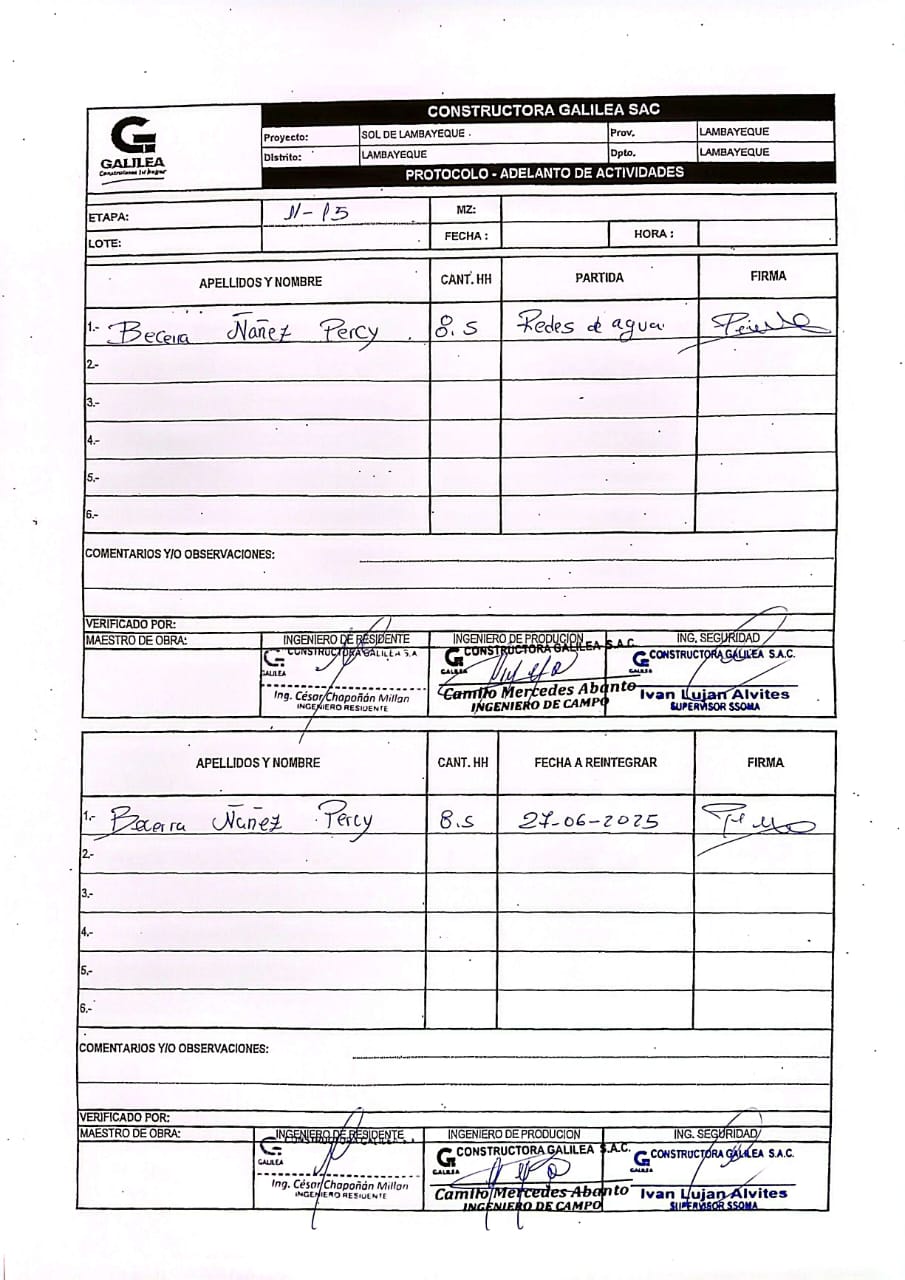 CONSTRUCTORA GALILEA SAC
GALILEA
Construimos tu hogar
Proyecto: SOL DE LAMBAYEQUE. Prov. LAMBAYEQUE
Distrito: LAMBAYEQUE Dpto. LAMBAYEQUE
PROTOCOLO - ADELANTO DE ACTIVIDADES
ETAPA: 11-15 MZ:
LOTE: FECHA: HORA:
APELLIDOS Y NOMBRE CANT. HH PARTIDA FIRMA
1.- Becerra Ñañez Percy. 8.5 Redes de agua
2.-
3.-
4.-
5.-
6.-
COMENTARIOS Y/O OBSERVACIONES:
VERIFICADO POR:
MAESTRO DE OBRA: INGENIERO DE RESIDENTE INGENIERO DE PRODUCION ING. SEGURIDAD
CONSTRUCTORA GALILEA S.A. CONSTRUCTORA GALILEA S.A.C. CONSTRUCTORA GALILEA S.A.C.
GALILEA GALILEA GALILEA
Ing. César Chapoñán Millan Camilo Mercedes Abanto Ivan Lujan Alvites
INGENIERO RESIDENTE INGENIERO DE CAMPO SUPERVISOR SSOMA
APELLIDOS Y NOMBRE CANT. HH FECHA A REINTEGRAR FIRMA
1.- Becerra Ñañez Percy 8.5 27-06-2025
2.-
3.-
4.-
5.-
6.-
COMENTARIOS Y/O OBSERVACIONES:
VERIFICADO POR:
MAESTRO DE OBRA: INGENIERO DE RESIDENTE INGENIERO DE PRODUCION ING. SEGURIDAD
CONSTRUCTORA GALILEA S.A.C. CONSTRUCTORA GALILEA S.A.C.
GALILEA GALILEA GALILEA
Ing. César Chapoñán Millan Camilo Mercedes Abanto Ivan Lujan Alvites
INGENIERO RESIDENTE INGENIERO DE CAMPO SUPERVISOR SSOMA